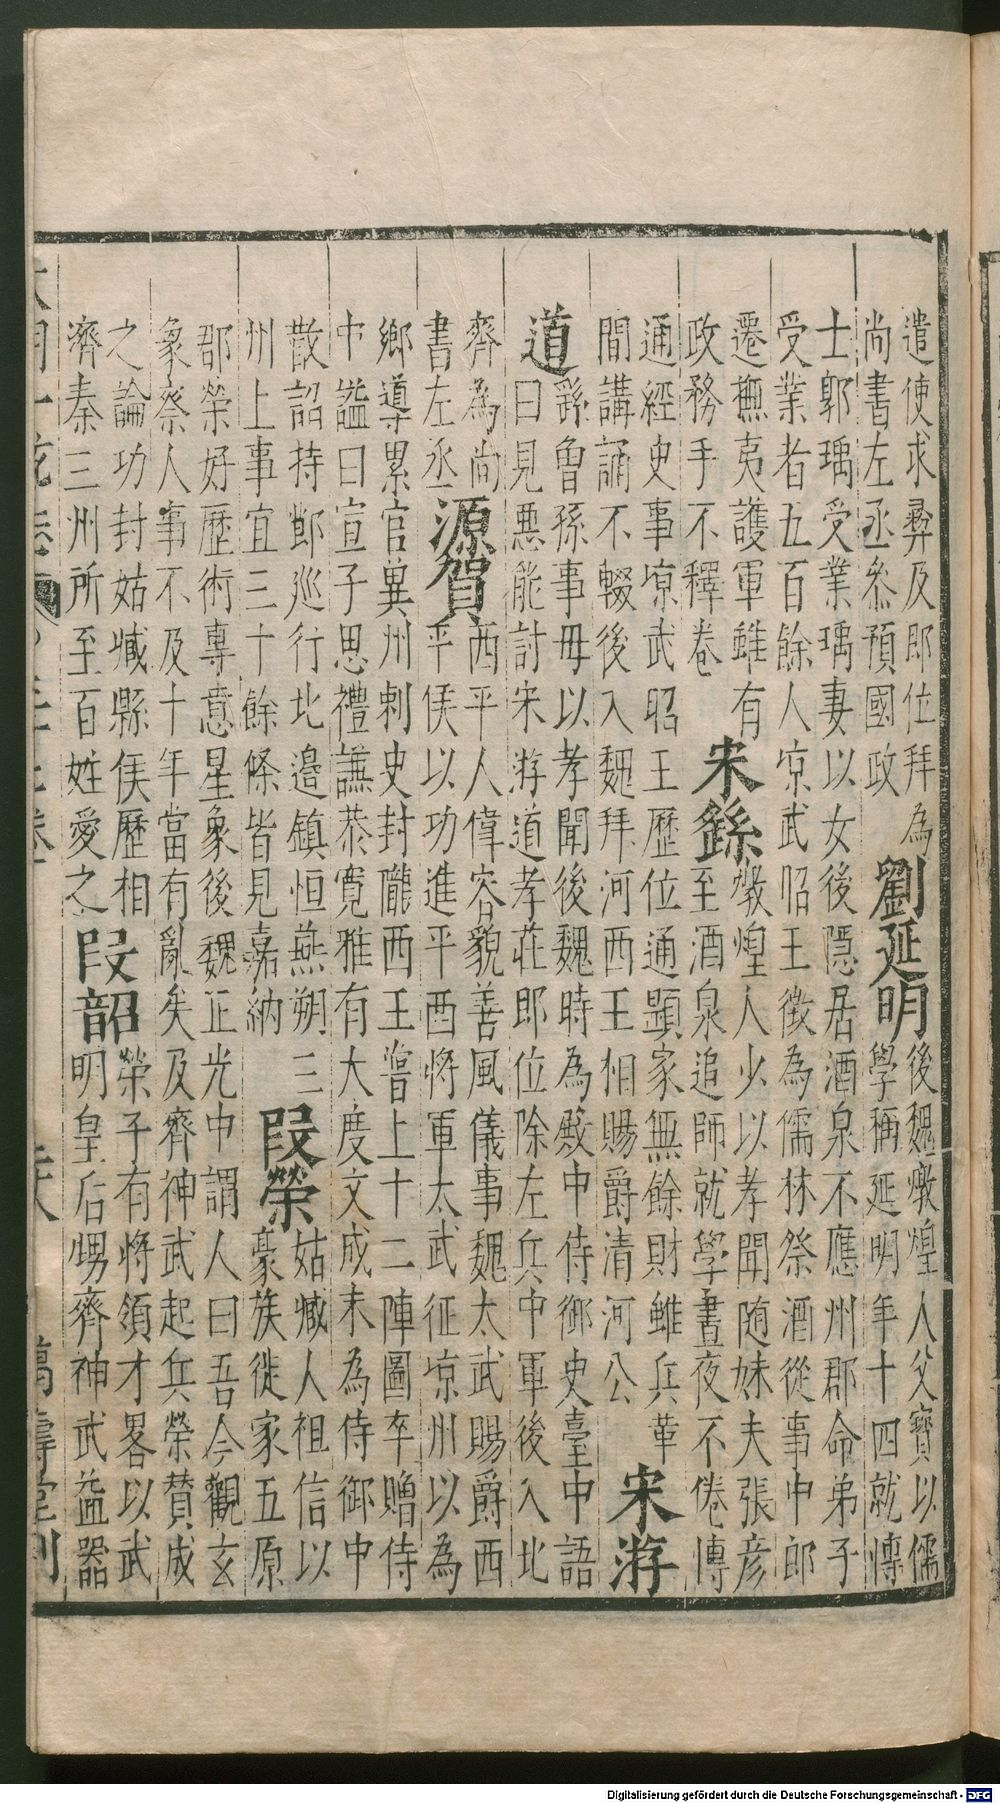 遣使求彛及即位拜為
尚書左丞叅預國政
劉延明
後魏燉煌人父寶以儒
學稱延明年十四就愽
士郭瑀受業瑀妻以女後隱居酒泉不應州郡命弟子
受業者五百餘人凉武昭王徵為儒林祭酒從事中郎
遷撫夷護軍雖有
政務手不釋卷
宋繇
燉煌人少以孝聞随妹夫張彦
至酒泉追師就學晝夜不倦愽
通經史事凉武昭王歷位通顯家無餘財雖兵革
間講誦不輟後入魏拜河西王相賜爵清河公
宋游
道
繇曾孫事母以孝聞後魏時為殿中侍御史臺中語
曰見惡能討宋游道孝莊即位除左兵中軍後入北
齊為尚
書左丞
源賀
西平人偉容貌善風儀事魏太武賜爵西
平侯以功進平西將軍太武征凉州以為
鄉導累官兾州刺史封隴西王甞上十二陣圖卒贈侍
中謚曰宣子思禮謙恭寬雅有大度文成末為侍御中
散詔持節巡行北邊鎮恒燕朔三
州上事宜三十餘條皆見嘉納
段榮
姑臧人祖信以
豪族徙家五原
郡榮好歷術專意星象後魏正光中謂人曰吾今觀玄
象察人事不及十年當有亂矣及齊神武起兵榮賛成
之論功封姑臧縣侯歷相
濟秦三州所至百姓愛之
段韶
榮子有將領才畧以武
明皇后甥齊神武益器
萬壽堂刊
Digitalisierung gefördert durch die Deutsche Forschungsgemeinschaft - DFG